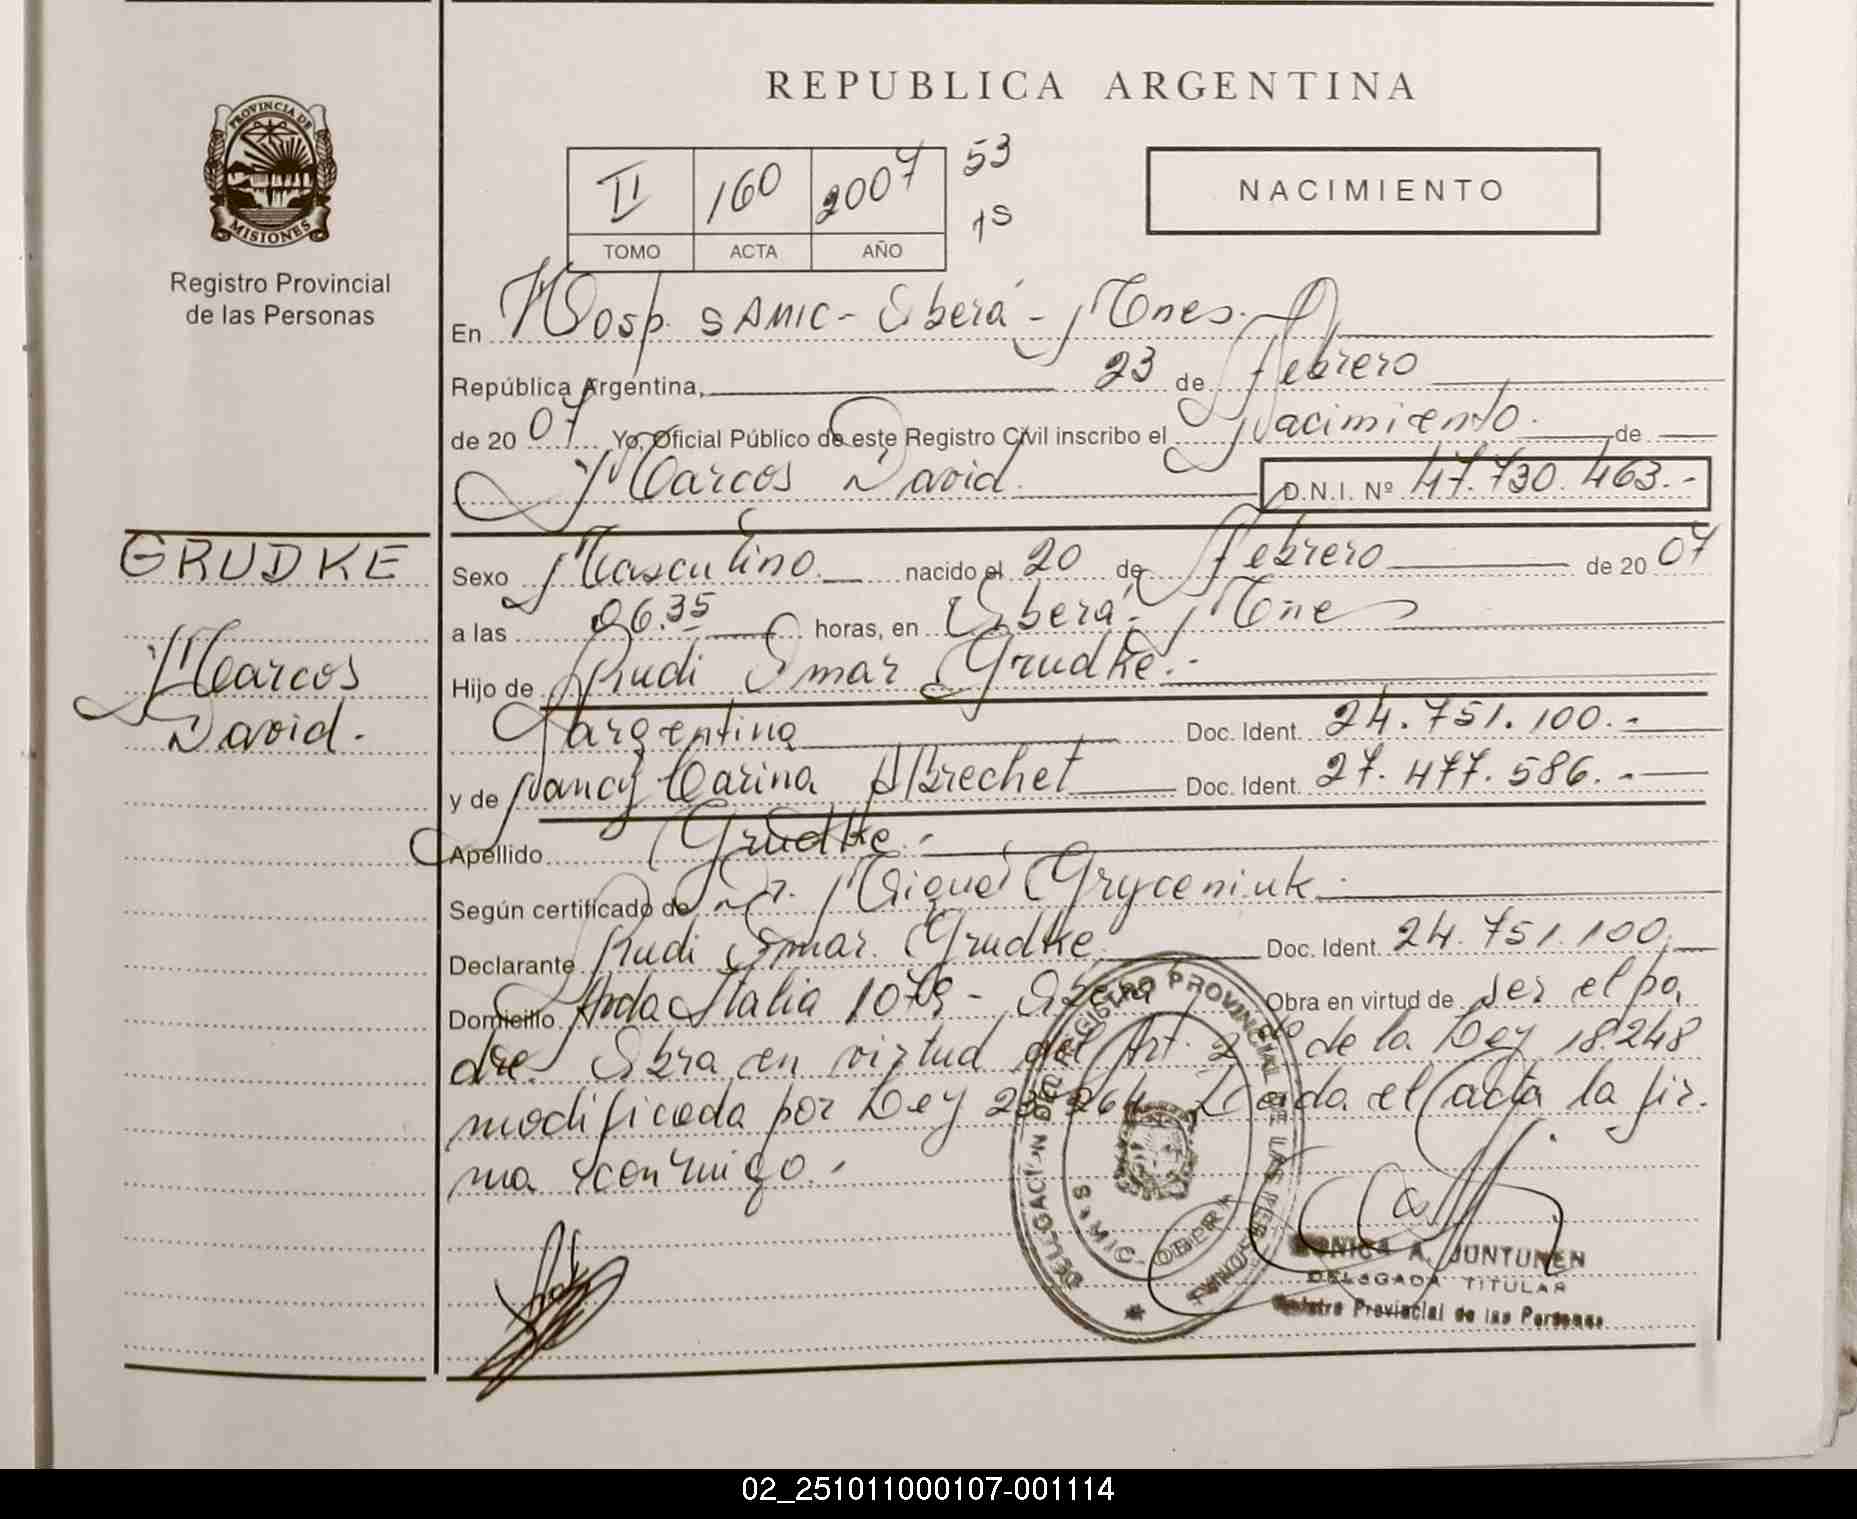 REPUBLICA ARGENTINA
PROVINCIA DE
MISIONES
Registro Provincial
de las Personas
II 160 2007 53
TOMO ACTA AÑO 1S
NACIMIENTO
En Hosp. SAMIC - Oberá - Mnes.
República Argentina, 23 de Febrero
de 20 07 Yo, Oficial Público de este Registro Civil inscribo el Nacimiento. de
Marcos David D.N.I. Nº 47.730.463.-
GRUDKE
Marcos
David.-
Sexo Masculino nacido el 20 de Febrero de 20 07
a las 06.35 horas, en Oberá - Mnes
Hijo de Rudi Omar Grudke.-
argentina Doc. Ident. 24.751.100.-
y de Nancy Carina Albrechet Doc. Ident. 27.477.586.-
Apellido Grudke.-
Según certificado de Dr. Miguel Gryceniuk.
Declarante Rudi Omar Grudke Doc. Ident. 24.751.100.
Domicilio Avda Italia - Oberá Obra en virtud de ser el pa.
dre. Obra en virtud del Art. 2do de la Ley 18248
modificada por Ley 23264 Leida el acta la fir.
ma conmigo.-
DELEGACIÓN DEL REGISTRO PROVINCIAL DE LAS PERSONAS
SAMIC - OBERA
MONICA A. JUNTUNEN
DELEGADA TITULAR
Registro Provincial de las Personas
02_251011000107-001114